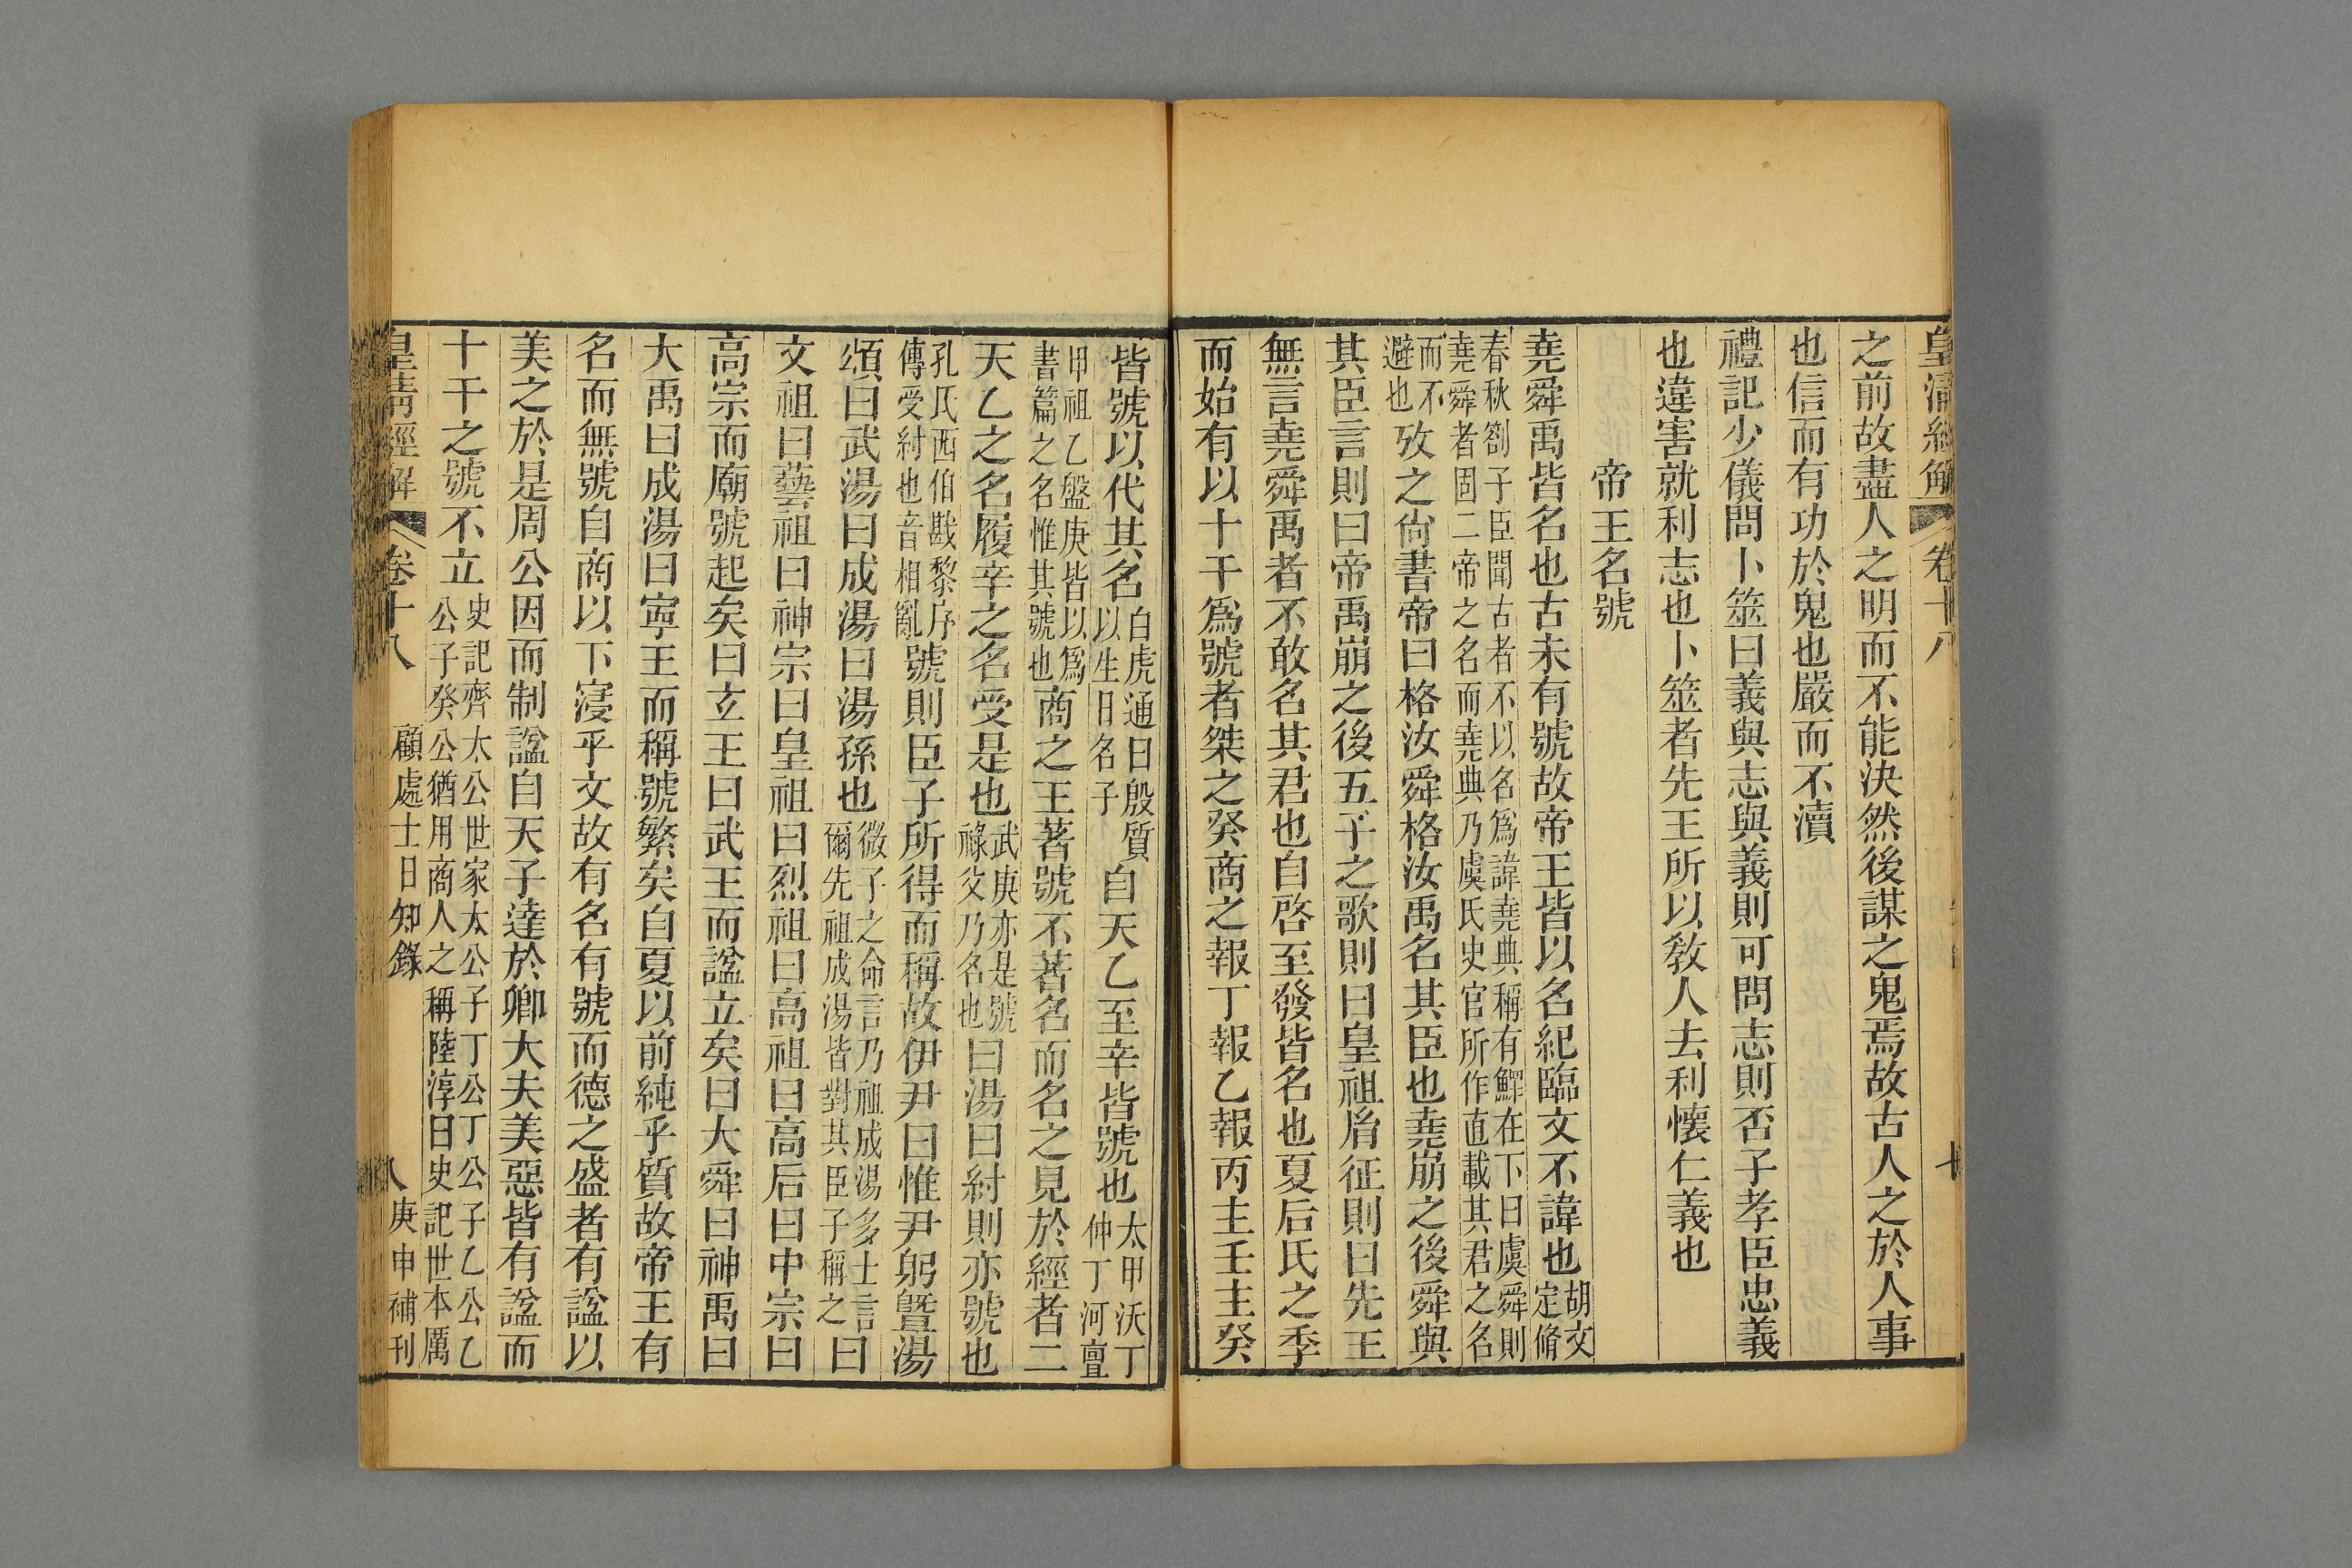 皇清經解 卷十八
之前故盡人之明而不能決然後謀之鬼焉故古人之於人事
也信而有功於鬼也嚴而不瀆
禮記少儀問卜筮曰義與志與義則可問志則否子孝臣忠義
也違害就利志也卜筮者先王所以教人去利懷仁義也
帝王名號
堯舜禹皆名也古未有號故帝王皆以名紀臨文不諱也胡文定脩
春秋劄子臣聞古者不以名為諱堯典稱有鰥在下曰虞舜則堯舜者固二帝之名而堯典乃虞氏史官所作直載其君之名
而不避也攷之尚書帝曰格汝舜格汝禹名其臣也堯崩之後舜與
其臣言則曰帝禹崩之後五子之歌則曰皇祖胤征則曰先王
無言堯舜禹者不敢名其君也自啓至發皆名也夏后氏之季
而始有以十干爲號者桀之癸商之報丁報乙報丙主壬主癸
皆號以代其名白虎通曰殷質以生日名子自天乙至辛皆號也太甲沃丁仲丁河亶
甲祖乙盤庚皆以爲書篇之名惟其號也商之王著號不著名而名之見於經者二
天乙之名履辛之名受是也武庚亦是號祿父乃名也曰湯曰紂則亦號也
孔氏西伯戡黎序傳受紂也音相亂號則臣子所得而稱故伊尹曰惟尹躬曁湯
頌曰武湯曰成湯曰湯孫也微子之命言乃祖成湯多士言爾先祖成湯皆對其臣子稱之曰
文祖曰藝祖曰神宗曰皇祖曰烈祖曰高祖曰高后曰中宗曰
高宗而廟號起矣曰玄王曰武王而諡立矣曰大舜曰神禹曰
大禹曰成湯曰寧王而稱號繁矣自夏以前純乎質故帝王有
名而無號自商以下寖乎文故有名有號而德之盛者有諡以
美之於是周公因而制諡自天子達於卿大夫美惡皆有諡而
十干之號不立史記齊太公世家太公子丁公丁公子乙公乙公子癸公猶用商人之稱陸淳曰史記世本厲
皇清經解 卷十八 顧處士日知錄 八 庚申補刊